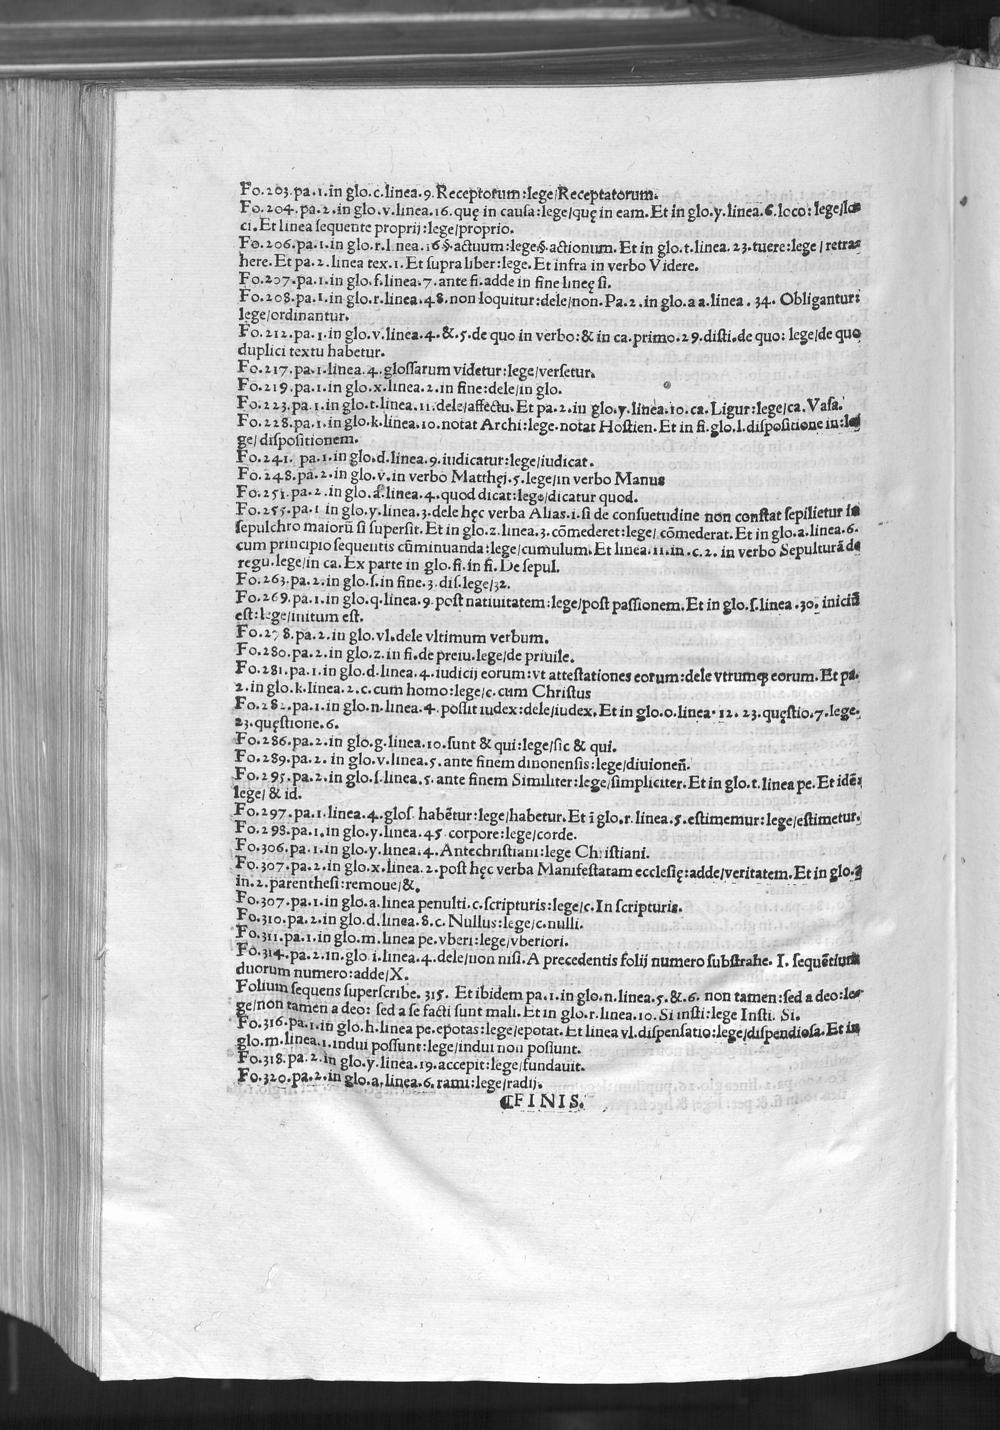 Fo.203.pa.1.in glo.c.linea.9.Receptorum:lege/Receptatorum.
Fo.204.pa.2.in glo.v.linea.16.quę in cauſa:lege/quę in eam. Et in glo.y.linea.6.loco: lege/lo⸗
ci.Et linea ſequente proprij:lege/proprio.
Fo.206.pa.1.in glo.r.l nea.16 §.actuum:lege§.actionum. Et in glo.t.linea.23.tuere:lege / retra⸗
here. Et pa.2.linea tex.1. Et ſupra liber:lege. Et infra in verbo Videre.
Fo.207.pa.1.in glo.ſ.linea.7.ante fi.adde in fine linęę ſi.
Fo.208.pa.1.in glo.r.linea.48.non loquitur:dele/non. Pa.2.in glo.a a.linea. 34. Obligantur:
lege/ordinantur.
Fo.212.pa.1.in glo.v.linea.4.&.5.de quo in verbo:& in ca.primo.29.diſti.de quo: lege/de quo
duplici textu habetur.
Fo.217.pa.1.linea.4.gloſſarum videtur:lege/verſetur.
Fo.219.pa.1.in glo.x.linea.2.in fine:dele/in glo.
Fo.223.pa.1.in glo.t.linea.11.dele/affectu. Et pa.2.in glo.y.linea.10.ca.Ligur:lege/ca.Vaſa.
Fo.228.pa.1.in glo.k.linea.10.notat Archi:lege.notat Hoſtien. Et in fi.glo.l.diſpoſitione in:le⸗
ge/ diſpoſitionem.
Fo.241. pa.1.in glo.d.linea.9.iudicatur:lege/iudicat.
Fo.248.pa.2.in glo.v.in verbo Matthęi.5.lege/in verbo Manus
Fo.251.pa.2.in glo.a.linea.4.quod dicat:lege/dicatur quod.
Fo.255.pa.1 in glo.y.linea.3.dele hęc verba Alias.1.ſi de conſuetudine non conſtat ſepilietur in
ſepulchro maiorū ſi ſuperſit. Et in glo.z.linea.3.cōmederet:lege/ cōmederat. Et in glo.a.linea.6.
cum principio ſequentis cūminuanda:lege/cumulum. Et linea.11.in .c.2. in verbo Sepulturā de
regu.lege/in ca. Ex parte in glo.fi.in fi. De ſepul.
Fo.263.pa.2.in glo.ſ.in fine.3.diſ.lege/32.
Fo.269.pa.1.in glo.q.linea.9.poſt natiuitatem:lege/poſt paſſionem. Et in glo.ſ.linea .30. iniciū
eſt:lege/initum eſt.
Fo.278.pa.2.in glo.vl.dele vltimum verbum.
Fo.280.pa.2.in glo.z.in fi.de preiu.lege/de priuile.
Fo.281.pa.1.in glo.d.linea.4.iudicij eorum:vt atteſtationes eorum:dele vtrumqꝫ eorum. Et pa.
2.in glo.k.linea.2.c.cum homo:lege/c.cum Chriſtus
Fo.282.pa.1.in glo.n.linea.4.poſſit iudex:dele/iudex. Et in glo.o.linea. 12. 23.quęſtio.7.lege.
23.quęſtione.6.
Fo.286.pa.2.in glo.g.linea.10.ſunt & qui:lege/ſic & qui.
Fo.289.pa.2.in glo.v.linea.5.ante finem dinonenſis:lege/diuionen̄.
Fo.295.pa.2.in glo.ſ.linea.5.ante finem Similiter:lege/ſimpliciter. Et in glo.t.linea pe. Et idē:
lege/ & id.
Fo.297.pa.1.linea.4.gloſ. habētur:lege/habetur. Et ī glo.r.linea.5.eſtimemur:lege/eſtimetur.
Fo.298.pa.1.in glo.y.linea.45 corpore:lege/corde.
Fo.306.pa.1.in glo.y.linea.4.Antechriſtiani:lege Chriſtiani.
Fo.307.pa.2.in glo.x.linea.2.poſt hęc verba Manifeſtatam eccleſię:adde/veritatem. Et in glo.
in.2.parentheſi:remoue/&.
Fo.307.pa.1.in glo.a.linea penulti.c.ſcripturis:lege/c.In ſcripturis.
Fo.310.pa.2.in glo.d.linea.8.c.Nullus:lege/c.nulli.
Fo.311.pa.1.in glo.m.linea pe.vberi:lege/vberiori.
Fo.314.pa.2.in.glo i.linea.4.dele/non niſi. A precedentis folij numero ſubſtrahe. I. ſequētium
duorum numero:adde/X.
Folium ſequens ſuperſcribe. 315. Et ibidem pa.1.in glo.n.linea.5.&.6. non tamen:ſed a deo:le⸗
ge/non tamen a deo: ſed a ſe facti ſunt mali. Et in glo.r.linea.10. Si inſti:lege Inſti. Si.
Fo.316.pa.1.in glo.h.linea pe.epotas:lege/epotat. Et linea vl.diſpenſatio:lege/diſpendioſa. Et in
glo.m.linea.1.indui poſſunt:lege/indui non poſſunt.
Fo.318.pa.2.in glo.y.linea.19.accepit:lege/fundauit.
Fo.320.pa.2.in glo.a.linea.6.rami:lege/radij.
¶FINIS.